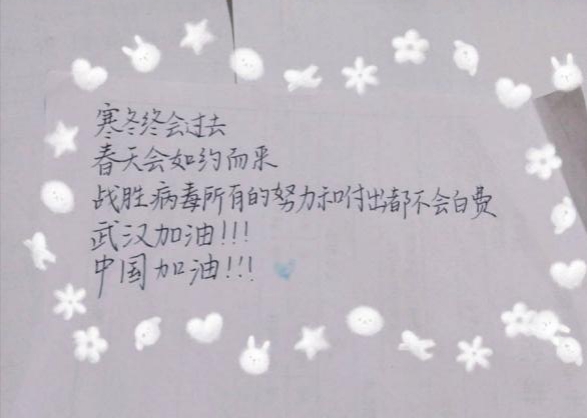 寒冬终会过去
春天会如约而来
战胜病毒所有的努力和付出都不会白费
武汉加油!!!
中国加油!!!